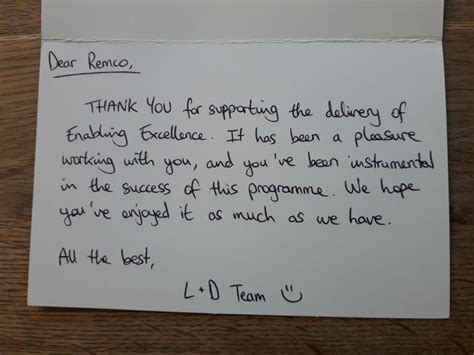 Dear Remco,
THANK YOU for supporting the delivery of
Enabling Excellence. It has been a pleasure
working with you, and you've been instrumental
in the success of this programme. We hope
you've enjoyed it as much as we have.
All the best,
L+D Team